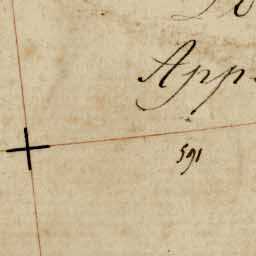 App
591